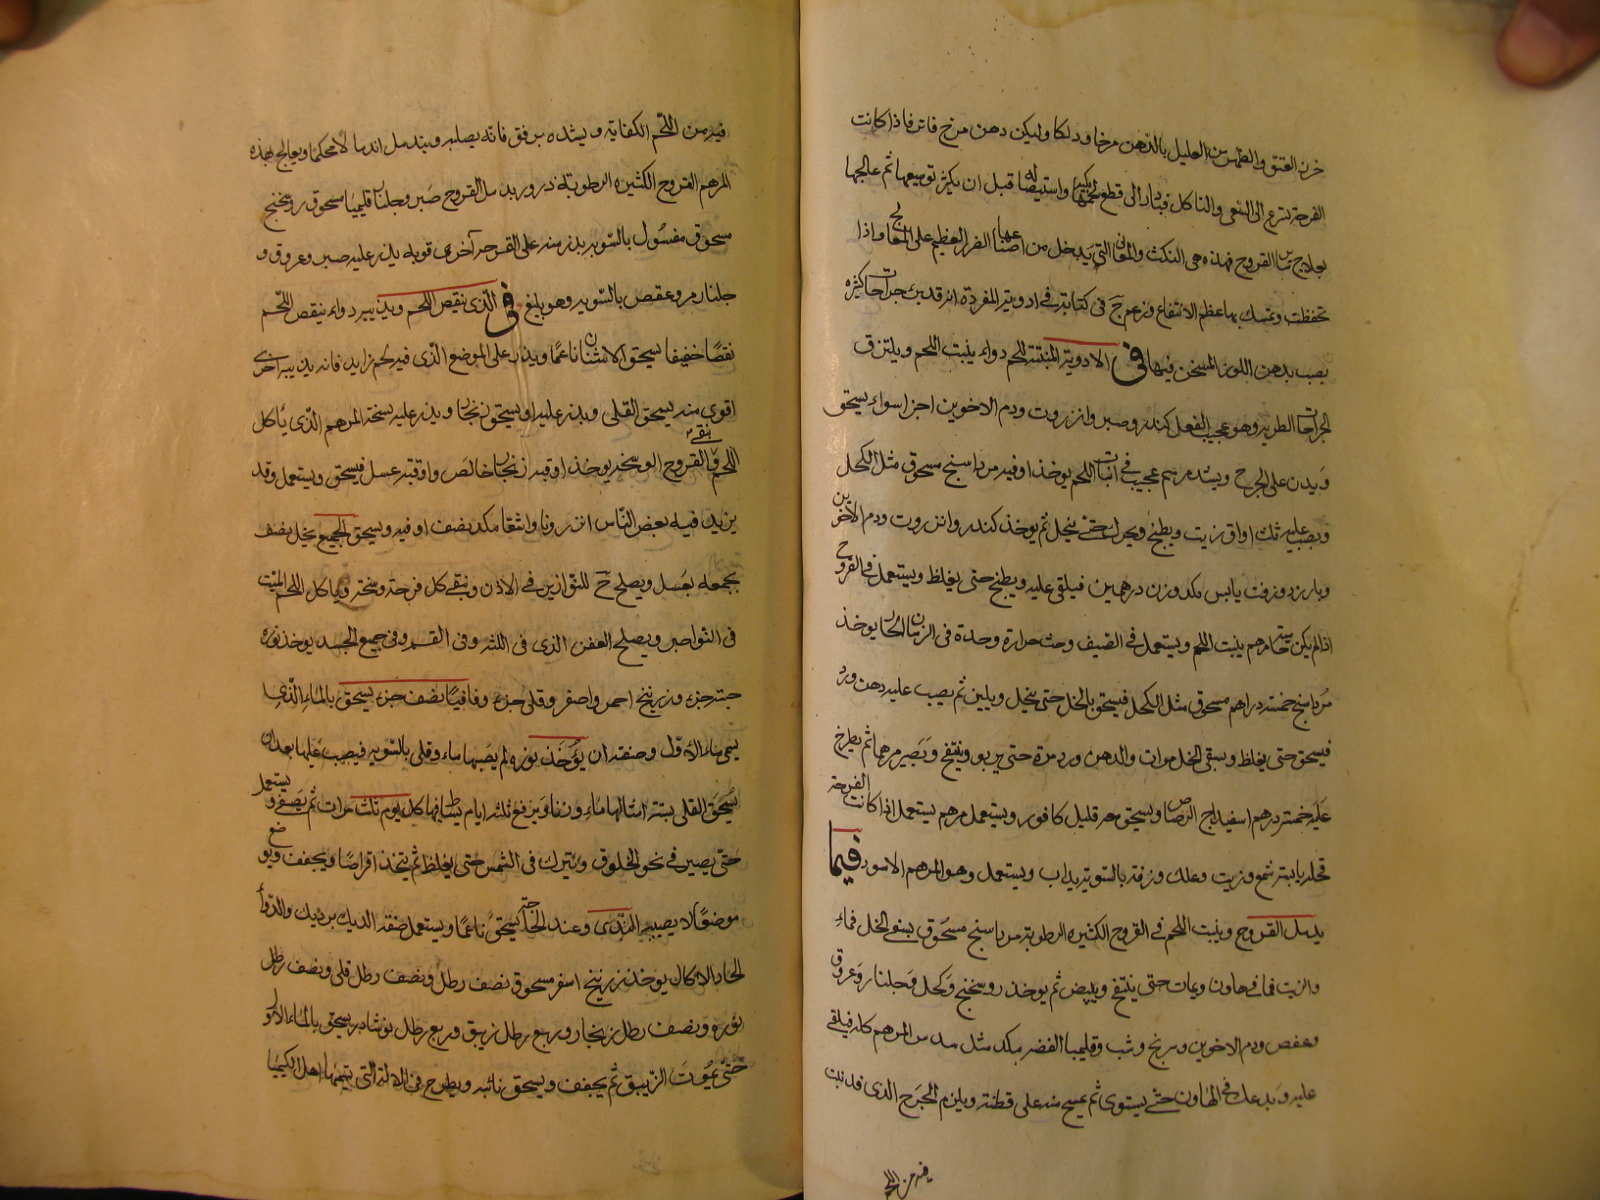 خرزة العنق والطهر من العليل بالدهن مرخا ودلكا وليكن دهن مرخ فاتر فاذا كانت
القرحة تسرع الى السعى والتاكل فبادر الى قطع لحمها واستيصاله قبل ان يكثر توسعها ثم عالجها
بعلاج سائر القروح فهذه هى النكت والمعانى التى يدخل من اصناعها الضرر العظيم على المعالج واذا
تحفظت وتمسك بها عظم الانتفاع وزعم ج فى كتابه فى ادويته المفردة انه قد يبرئ جراحات كثيرة
يصب بدهن اللوز المسخن فيها فى الادوية المنبتة للحم دواء ينبت اللحم ويلتزق
الجراحات الطرية وهو عجيب الفعل كندر وصبر وانزروت ودم الاخوين اجزا سواء يسحق
ويذر على الجرح ويشد مرهم عجيب فى انبات اللحم يوخذ اوقية مرداسنج مسحوق مثل الكحل
ويصب عليه ثلث اواق زيت ويطبخ ويحرك حتى ينحل ثم يوخذ كندر وانزروت ودم الاخوين
وبارزد وزفت يابس مكد وزن درهمين فيلقى عليه ويطبخ حتى يغلظ ويستعمل فى القروح
اذا لم يكن حارة مرهم ينبت اللحم ويستعمل فى الصيف وحيث حرارة وحدة فى الزمان الحار يوخذ
مرداسنج خمسة دراهم مسحوق مثل الكحل فيسحق بالخل حتى ينحل ويلين ثم يصب عليه دهن ورد
فيسحق حتى يغلظ ويسقى الخل مرات والدهن ورد مرة حتى يربو وينتفخ ويصير مرهما ثم يطرح
عليه خمسة درهم اسفيداج الرصاص ويسحق معه قليل كافور ويستعمل مرهم يستعمل اذا كانت القرحة
قحلة يابسة شمع وزيت وعلك وزفت بالسوية يذاب ويستعمل وهو المرهم الاسود فيما
يدمل القروح وينبت اللحم فى القروح الكثيرة الرطوبة مرداسنج مسحوق يسقى الخل فماء
والزيت فى هاون ويمات حتى ينتفخ ويبيض ثم يوخذ روسختج وكحل وجلنار وعروق
وعفص ودم الاخوين وسرنج وشب وقليميا الفضة مكد مثل سدس المرهم كله فيلقى
عليه ويدعك فى الهاون حتى يستوى ثم يمسح منه على قطنة ويلزم الجرح الذى قد نبت
فيه من اللحم
فيه من اللحم الكفاية ويشده برفق فانه يصلبه ويندمل اندمالا محكما ويعالج بهذه
المرهم القروح الكثيرة الرطوبة ذرور يدمل القروح صبر وجلنار قليميا مسحوق روسختج
مسحوق مغسول بالسوية يذر منه على القرحة آخر قوية يذر عليه صبر وعروق و
جلنار مر وعفص بالسوية وهو بليغ فى الذى ينقص اللحم ويذيبه دواء ينقص اللحم
نقصا خفيفا يسحق الاشنان ناعما ويذر على الموضع الذى فيه لحم زايد فانه يذيبه اخرى
اقوى منه يسحق القلى ويذر عليه او يسحق زنجار ويذر عليه نسخة المرهم الذى يأكل
اللحم وينقى القروح الوسخة يوخذ اوقية زنجار خالص واوقية عسل فيسحق ويستعمل وقد
يزيد فيه بعض الناس انزروتا واشقا مكد نصف اوقية ويسحق الجميع بخل نصف
يجمعه بعسل ويصلح ح للقوازين فى الاذن وينقى كل قرحة وسخة ويأكل اللحم الميت
فى النواصير ويصلح العفن الذى فى اللثه وفى الفم وفى جميع الجسد يوخذ نورة
حية جزء وزرنيخ احمر واصفر وقلى جزء وقاقيا نصف جزء يسحق بالماء الذى
يسمى ماء الاول وصفته ان يؤخذ نورة لم يصبها ماء وقلى بالسوية فيصب عليها بعد ان
يسحق القلى بستة امثالها ماء وتفاوير فع ثلثة ايام يساط فيها كل يوم ثلث مرات ثم يصفى ويستعمل
حتى يصير فى نحو الخلوق ويترك فى الشمس حتى يغلظ ثم يتخذ اقراصا ويجفف ويوضع
موضعا لا يصيبه الندى وعند الحاجة يسحق ناعما ويستعمل صفة الديك برديك والدوأ
الحاد الاكال يوخذ زرنيخ اصفر مسحوق نصف رطل ونصف رطل قلى ونصف رطل
نورة ونصف رطل زنجار وربع رطل زيبق وربع رطل نوشادر يسحق بالماء الاول
حتى يموت الزيبق ثم يجفف ويسحق ثانية ويطرح فى الالة التى يسميها اهل الكيميا